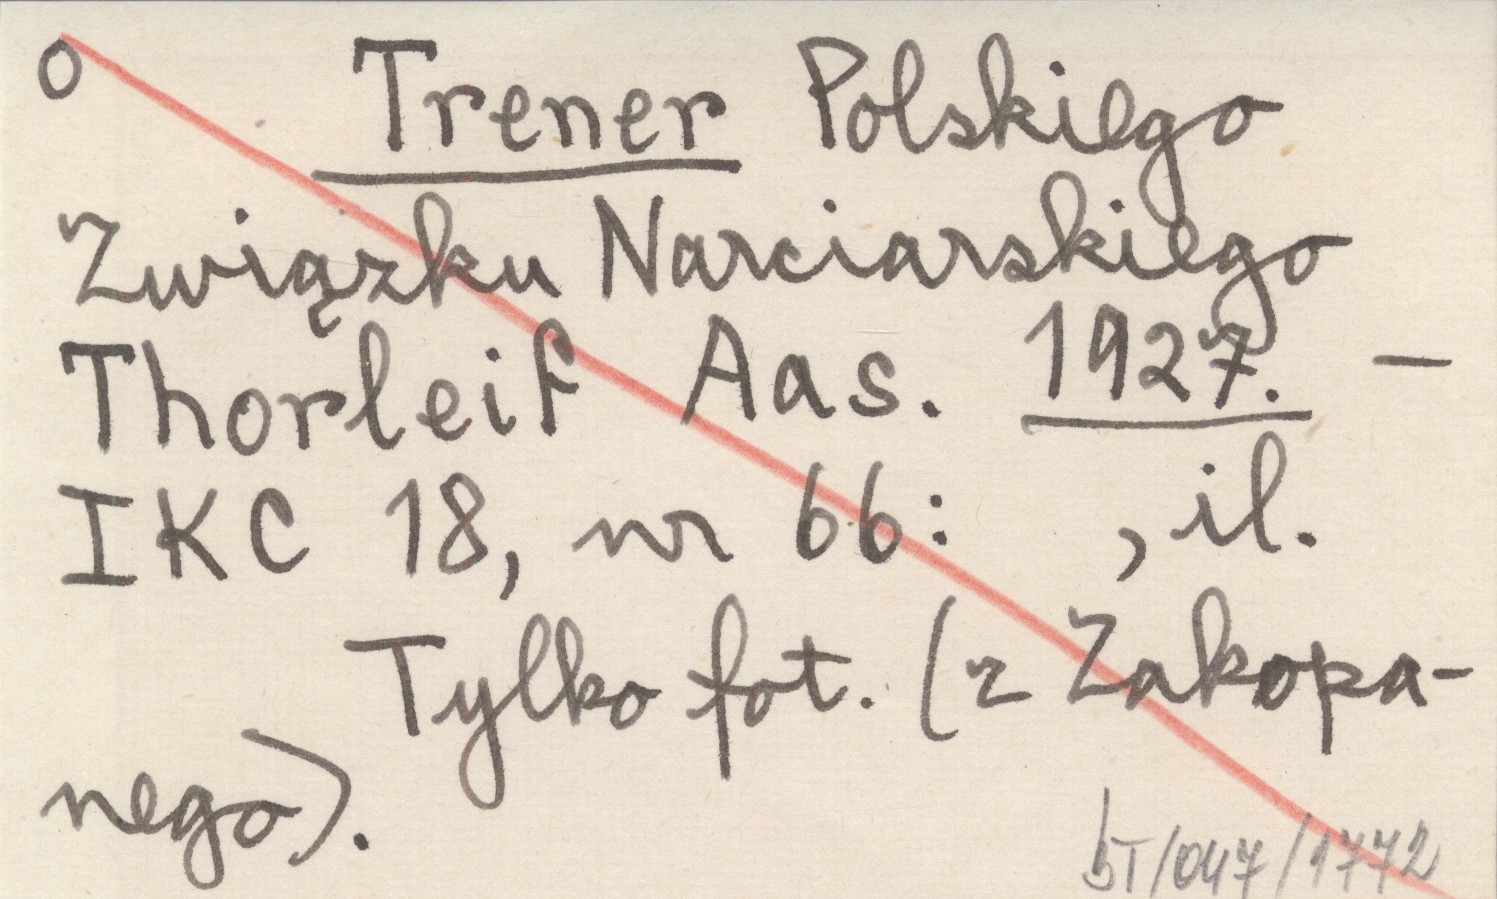 o Trener Polskiego
Związku Narciarskiego
Thorleif Aas. 1927. —
IKC 18, nr 66: , il.
Tylko fot. (z Zakopa-
nego).
bT/047/1772